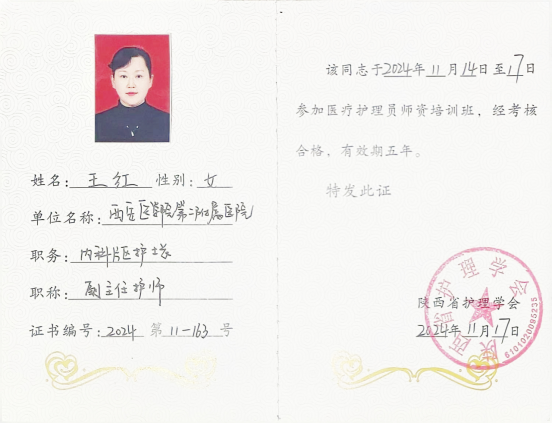 姓名：王红 性别：女
单位名称：西安医学院第二附属医院
职务：内科片区护士长
职称：副主任护师
证书编号：2024 第 11-163 号
该同志于2024年11月14日至17日
参加医疗护理员师资培训班，经考核
合格，有效期五年。
特发此证
陕西省护理学会
2024年11月17日
陕西省护理学会
6101020095235